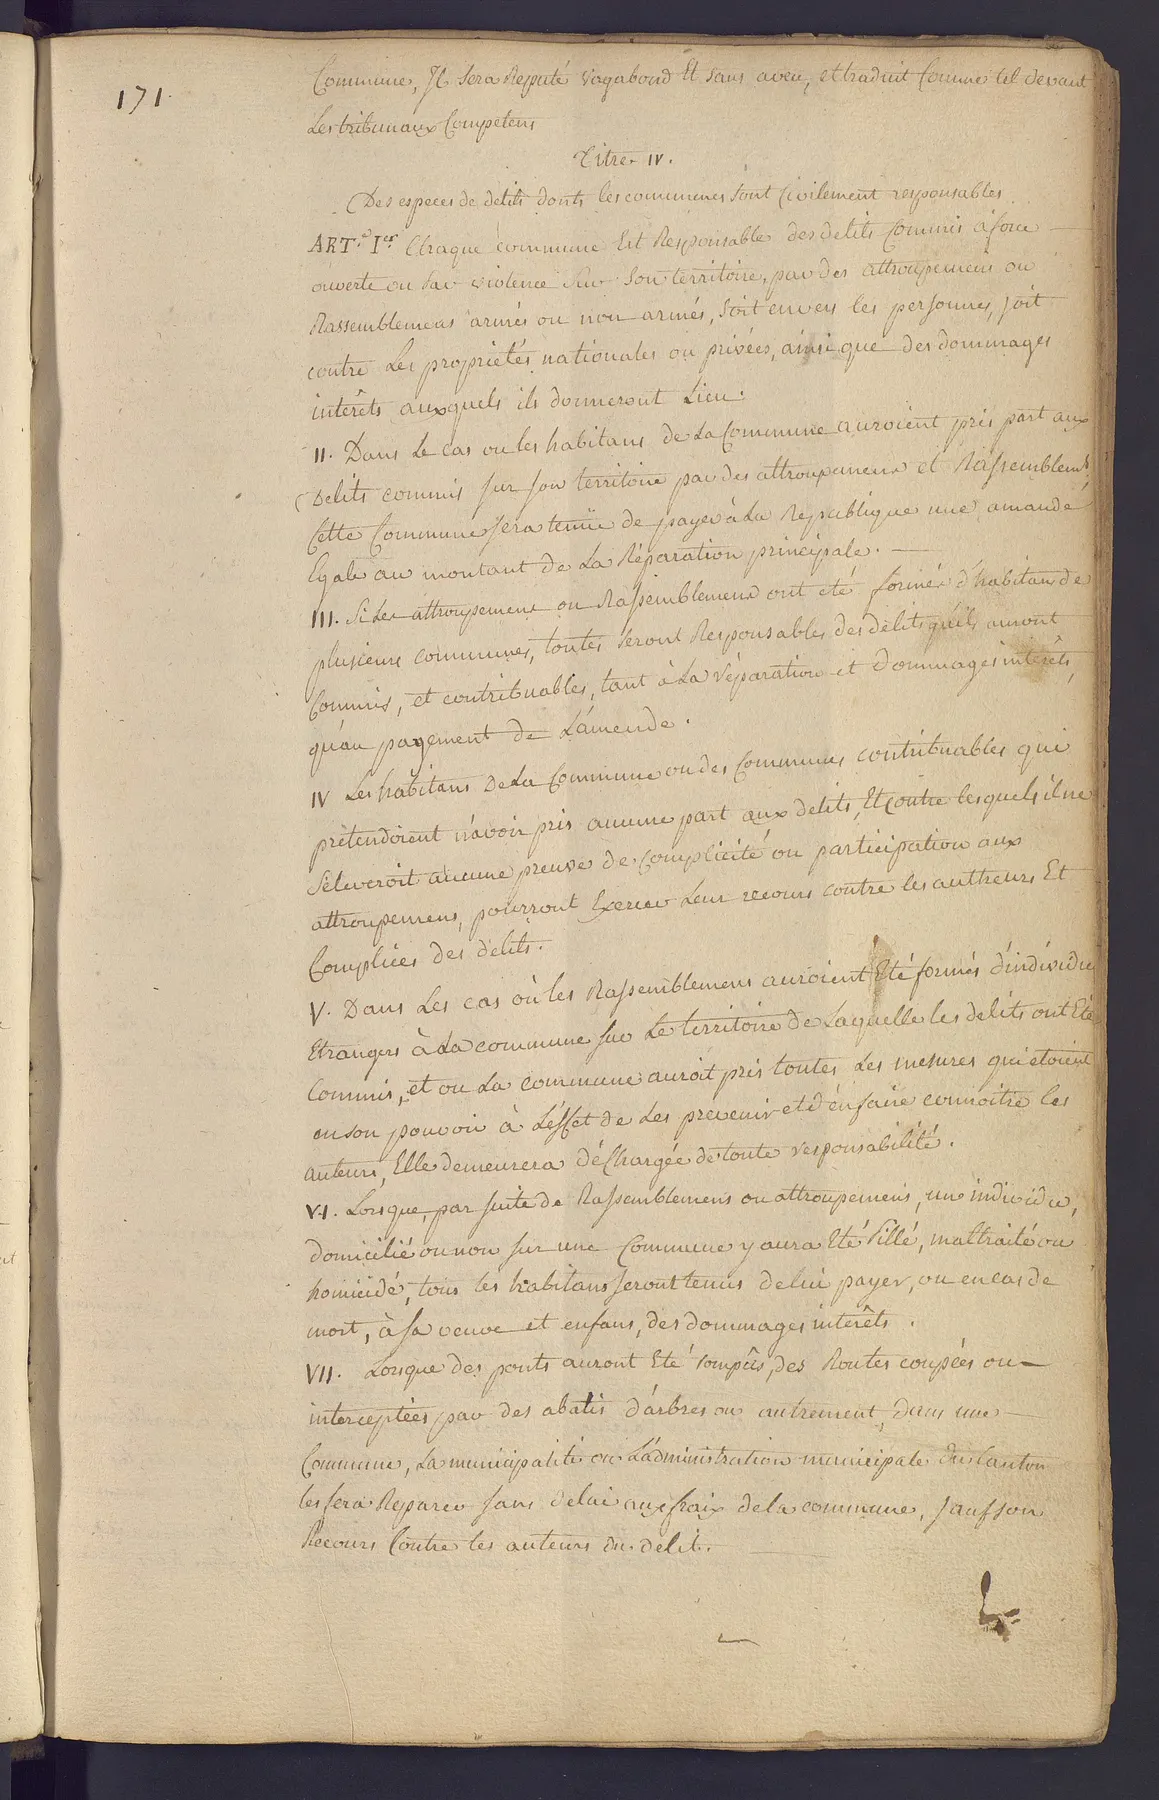 171.
Commune, Il sera Reputé vagabond Et sans aveu, et traduit Comme tel devant
Les tribunaux Competens
Titre IV.
Des especes de delits donts les communes sont Civilement responsables
ART.e Ier Chaque commune Est Responsable des delits Commis à force
ouverte ou par violence sur son territoire, par des attroupemens ou
Rassemblemens armés ou non armés, soit envers les personnes, soit
contre Les propriétés nationales ou privées, ainsi que des dommages
intérêts auxquels ils donneront Lieu.
II. Dans le cas ou les habitans de La Commune auroient pris part aux
Delits commis sur son territoire par des attroupemens et Rassemblemts
Cette Commune sera tenüe de payer à La Republique une amande
Egale au montant de La Réparation principale.
III. Si Les attroupemens ou Rassemblemens ont eté formés d'habitans de
plusieurs communes, toutes seront Responsables des delits qu'ils auront
Commis, et contribuables, tant à La réparation et dommages intérêts,
qu'au payement de L'amende.
IV Les habitans De La Commune ou des Communes contribuables qui
prétendroient n'avoir pris aucune part aux delits, Et contre lesquels il ne
s'éleveroit aucune preuve de Complicité ou participation aux
attroupemens, pourront Exercer Leur recours contre les autheurs Et
Complices des délits.
V. Dans Les cas où les Rassemblemens auroient Eté formés d'individus
Etrangers à La commune sur Le territoire de Laquelle les delits ont Eté
Commis, et ou La commune auroit pris toutes Les mesures qui étoient
en son pouvoir à L'effet de Les prevenir et d'en faire connoitre les
auteurs, Elle demeurera déChargée de toute responsabilité.
VI. Lorsque, par suite de Rassemblemens ou attroupemens, une individu,
domicilié ou non sur une Commune y aura Eté Pillé, maltraité ou
homicidé, tous les habitans seront tenus de lui payer, ou en cas de
mort, à sa veuve et enfans, des dommages intérêts.
VII. Lorsque des ponts auront Eté rompûs, des Routes coupées ou
interceptées par des abatis d'arbres ou autrement, dans une
Commune, La municipalité ou L'administration municipale du Canton
les fera Reparer sans delai aux fraix de la commune, sauf son
Recours Contre les auteurs du delit.